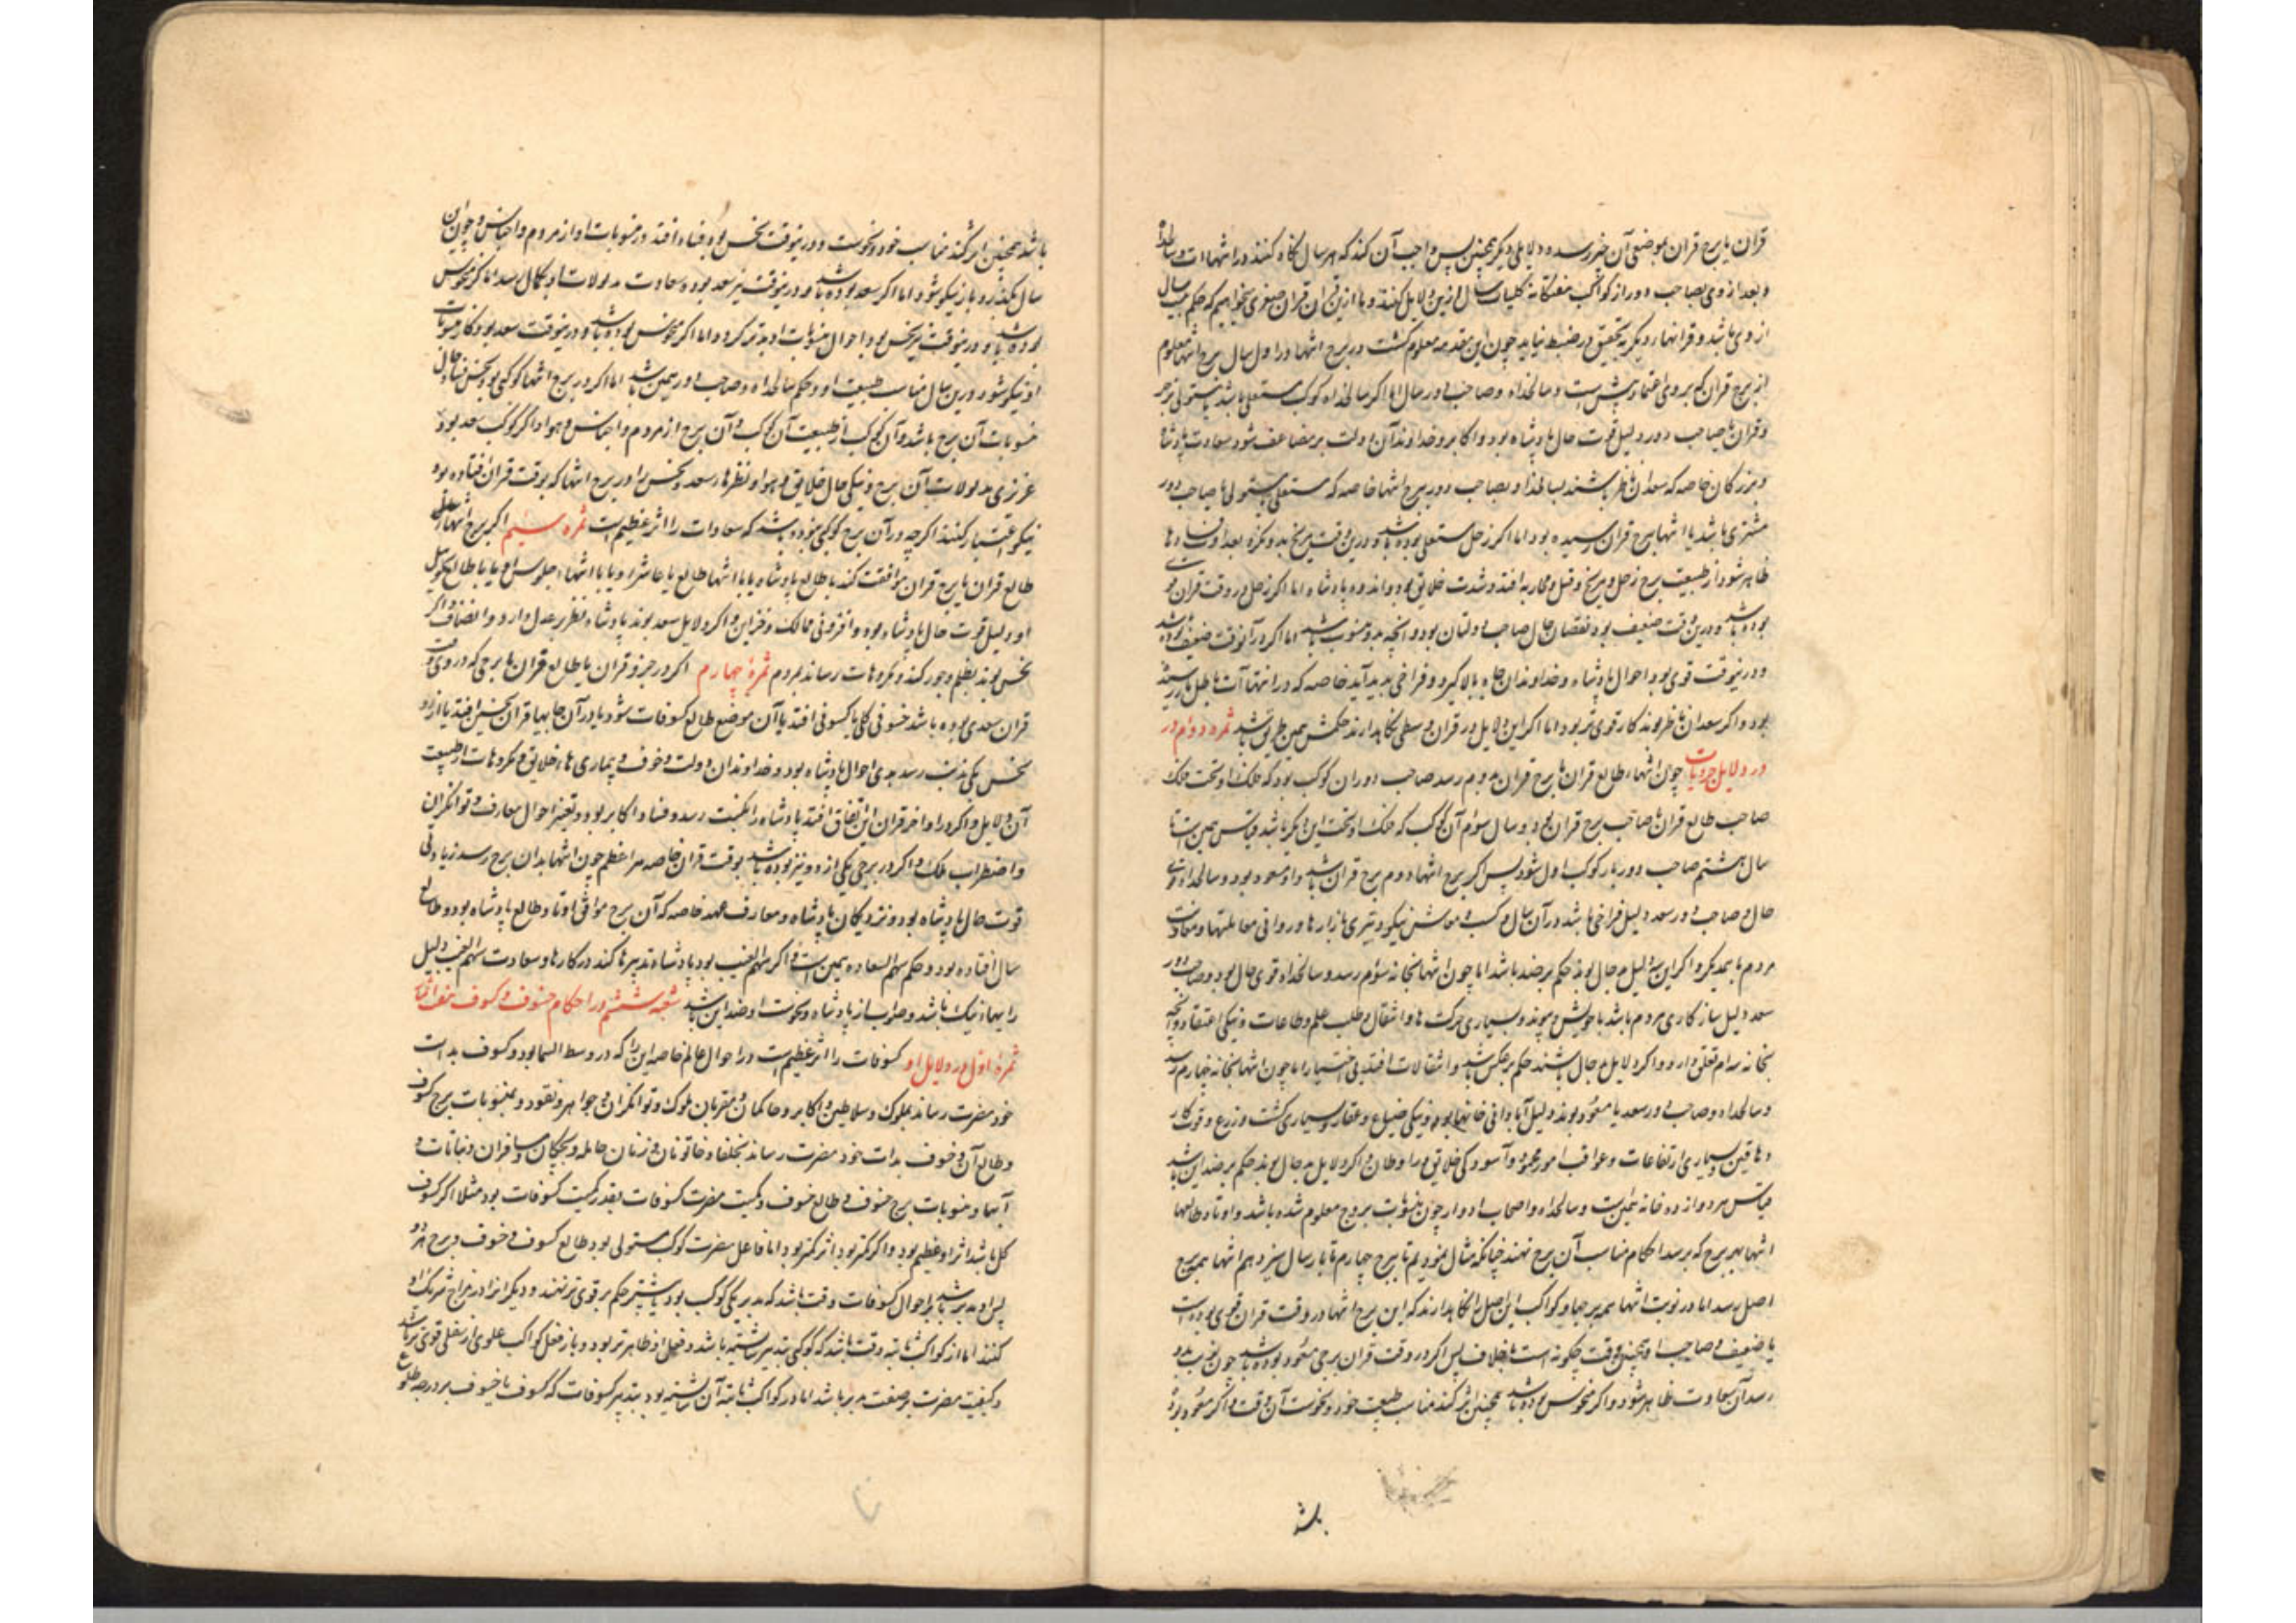 قران یا برج قران بموضعی آن خبر رسد و دلایلی دیگر همچنین پس واجب آن کند که هر سال نگاه کنند در انتهاات و سالخداه
و بعد از وی بصاحب دور از کواکب هفتگانه کلیات سال ازین دلایل کنند و ما ازین قران قران صغری میخواهیم که حکم بیست سال
از وی باشد و قرانهاء دیگر به تحقیق در ضبط نیاید چون این مقدمه معلوم گشت در برج انتها در اول سال برج انتها معلوم
از برج قران که بر وی اعتماد بیشتر است و سالخداه و صاحب دور سال اما اگر سالخداه کوکب مستعلی باشد یا مستولی بر جزو
و قران یا صاحب دور دلیل قوت حال پادشاه بود و اکابر و خداوندان دولت بر مضاعف شود سعادت پادشاه
و بزرگان خاصه که سعدان ناظر باشند بسالخداه و بصاحب دور ببرج انتها خاصه که مستعلی یا مستولی یا صاحب دور
مشتری باشد یا انتها ببرج قران رسیده بود اما اگر زحل مستعلی بوده باشد و درین وقت مریخ بد و نگرد بعداوت فسادها
ظاهر شود از طبیعت برج زحل و مریخ و قتل و محاربه افتد و شدت خلایق بود و اندوه پادشاه اما اگر زحل در وقت قران قوی
بوده باشد و درین وقت ضعیف بود نقصان حال صاحب دولتان بود و آنچه بدو منسوب باشد اما اگر در آنوقت ضعیف بوده باشد
و درینوقت قوی بود احوال پادشاه و خداوندان جاه بالا گیرد و فراخی پدید آید خاصه که در انتهاآت باطل نارسیده
بود و اگر سعدان ناظر بوند کار قوی‌تر بود اما اگر این دلایل در قران وسطی نگاه دارند حکمش همین طریق باشد ثمره دوم در
در دلایل جزویات چون انتهاء طالع قران یا برج قران بدوم رسد صاحب دوران کوکب بود که فلک او تحت فلک
صاحب طالع قران یا صاحب برج قران بود و سال سوم آن کوکب که فلک او تحت این دیگر باشد قیاس همین است تا
سال هشتم صاحب دور باز کوکب اول شود پس اگر برج انتها دوم برج قران باشد و او مسعود بود و سالخداه قوی
حال و صاحب دور سعد دلیل فراخی باشد در آن سال و کسب و معاش نیکو و تیزی بازارها و روانی معاملتها و معاونت
مردم با یکدیگر و اگر این سه دلیل بدحال بوند حکم بر ضد باشد اما چون انتها بخانه سوم رسد و سالخداه قوی حال بود و صاحب دور
سعد دلیل سازگاری مردم باشد با خویش و پیوند و بسیاری حرکت ها و انتقال و طلب علم و طاعات و نیکی اعتقاد و آنچه
بخانه سوم تعلق دارد و اگر دلایل بدحال باشند حکم بر عکس باشد و انتقالات افتد بی اختیار اما چون انتها بخانه چهارم رسد
و سالخداه و صاحب دور سعد یا مسعود بوند دلیل آبادانی خانها بود و نیکی ضیاع و عقار و بسیاری کشت و زرع و قوت کار
دهاقین و بسیاری ارتفاعات و عواقب امور محمود و آسودگی خلایق در اوطان و اگر دلایل بدحال بوند حکم بر ضد این باشد
قیاس هر دوازده خانه همین است و سالخداه و اصحاب ادوار چون منسوبات بروج معلوم شده باشد و اوتاد طالعها
انتها بهر برج که برسد احکام مناسب آن برج نهند چنانکه مثال نمودیم تا برج چهارم تا باز سال سیزدهم انتها ببرج
اصل رسد اما در نوبت انتها بهمه برجها و کواکب این اصل را نگاه دارند که این برج انتها در وقت قران قوی بوده است
یا ضعیف و صاحب او همچنین وقت چگونه است بخلاف پس اگر در وقت قران برجی مسعود بوده باشد چون نوبت بدو
رسد آن سعادت ظاهر شود و اگر منحوس بوده باشد همچنین اثر کند مناسب طبیعت خود و نحوست آن وقت و اگر مسعود بوده
باشد
باشد همچنین اثر کند مناسب خود و نحوست و درینوقت نحس بود فساد افتد در منسوبات او از مردم و اجناس و چون آن
سال بگذرد باز نیکو شود اما اگر سعد بوده باشد و درینوقت نیز سعد بود سعادت مدلولات او بکمال رسد اما اگر منحوس
بوده باشد و درینوقت نیز نحس بود احوال منسوبات او بدتر گردد اما اگر منحوس بوده باشد و درینوقت سعد بود کار منسوبات
او نیکو شود درین سال مناسب طبیعت او و حکم سالخداه و صاحب دور همین باشد اما اگر در برج انتها کوکبی بود نحس فساد حال
منسوبات آن برج باشد و آن کوکب از طبیعت آن کوکب و آن برج از مردم و اجناس و هوا و اگر کوکب سعد بود
عزیزی مدلولات آن برج و نیکی حال خلایق و هوا و نظرهاء سعد و نحس را در برج انتها که بوقت قران افتاده بود
نیکو اعتبار کنند اگرچه در آن برج کوکبی نبوده باشد که سعادات را اثر عظیم است ثمره سیم اگر برج انتهاء اعلی
طالع قران یا برج قران موافقت کند با طالع پادشاه یا با انتها طالع یا عاشر او یا با انتهاء جلوس او یا با طالع تحویل
او دلیل قوت حال پادشاه بود و افزونی ممالک و خزاین و اگر دلایل سعد بوند پادشاه نظر بر عدل دارد و انصاف و اگر
نحس بوند بظلم و جور کند و مکروهات رساند بمردم ثمرهٔ چهارم اگر در جزو قران یا طالع قران یا برجی که در وی وقت
قران سعدی بوده باشد خسوفی کلی یا کسوفی افتد یا آن موضع طالع کسوفات شود یا در آن جایها قران نحسین افتد یا از دو
نحس یکی بدان رسد بدی احوال پادشاه بود و خداوندان دولت و خوف و بیماری هاء خلایق و مکروهات از طبیعت
آن دلایل و اگر در اواخر قران این اتفاق افتد پادشاه را نکبت رسد و فساد اکابر بود و تغیر احوال معارف و توانگران
و اضطراب ملک و اگر در برجی یکی از دو نیر بوده باشد بوقت قران خاصه نیر اعظم چون انتها بدان برج رسد زیادتی
قوت حال پادشاه بود و نزدیکان پادشاه و معارف عهد خاصه که آن برج موافق اوتاد طالع پادشاه بود و طالع
سال افتاده بود و حکم سهم السعاده همین است و اگر سهم الغیب بود پادشاه تدبیرها کند در کارها و سعادت سهم الغیب دلیل
رایهاء نیک باشد و صواب از پادشاه و نحوست او ضد این باشد شعبه ششم در احکام خسوف و کسوف
ثمرهٔ اول در دلایل او کسوفات را اثر عظیم است در احوال عالم خاصه این را که در وسط السما بود و کسوف بذات
خود مضرت رساند بملوک و سلاطین و اکابر و حاکمان و مقربان ملوک و توانگران و جواهر و نقود و بمنسوبات برج کسوف
و طالع آن و خسوف بذات خود مضرت رساند بخلفا و خاتونان و زنان حامله و بچگان و مسافران و نباتات و
آبها و منسوبات برج خسوف و طالع خسوف و کمیت مضرت کسوفات بقدر کمیت کسوفات بود مثلا اگر کسوف
کل باشد اثر او عظیم بود و اگر کمتر بود اثر کمتر بود اما فاعل مضرت کوکب مستولی بود بطالع کسوف و خسوف و برج هر دو
پس او مدبر باشد بر احوال کسوفات وقت باشد که مدبر یکی کوکب بود یا بیشتر حکم بر قوی‌تر نهند و دیگر را در مزاج شریک او
کنند اما از کواکب ثابته وقت باشد که کوکبی بتدبیر شایسته باشد و فعل او ظاهرتر بود و باز فعل کواکب علوی از سفلی قوی‌تر باشد
و کیفیت مضرت بر صفت مدبر باشد اما در کواکب ثابته آن شایسته بود بتدبیر کسوفات که کسوف یا خسوف بر درجه طلوع